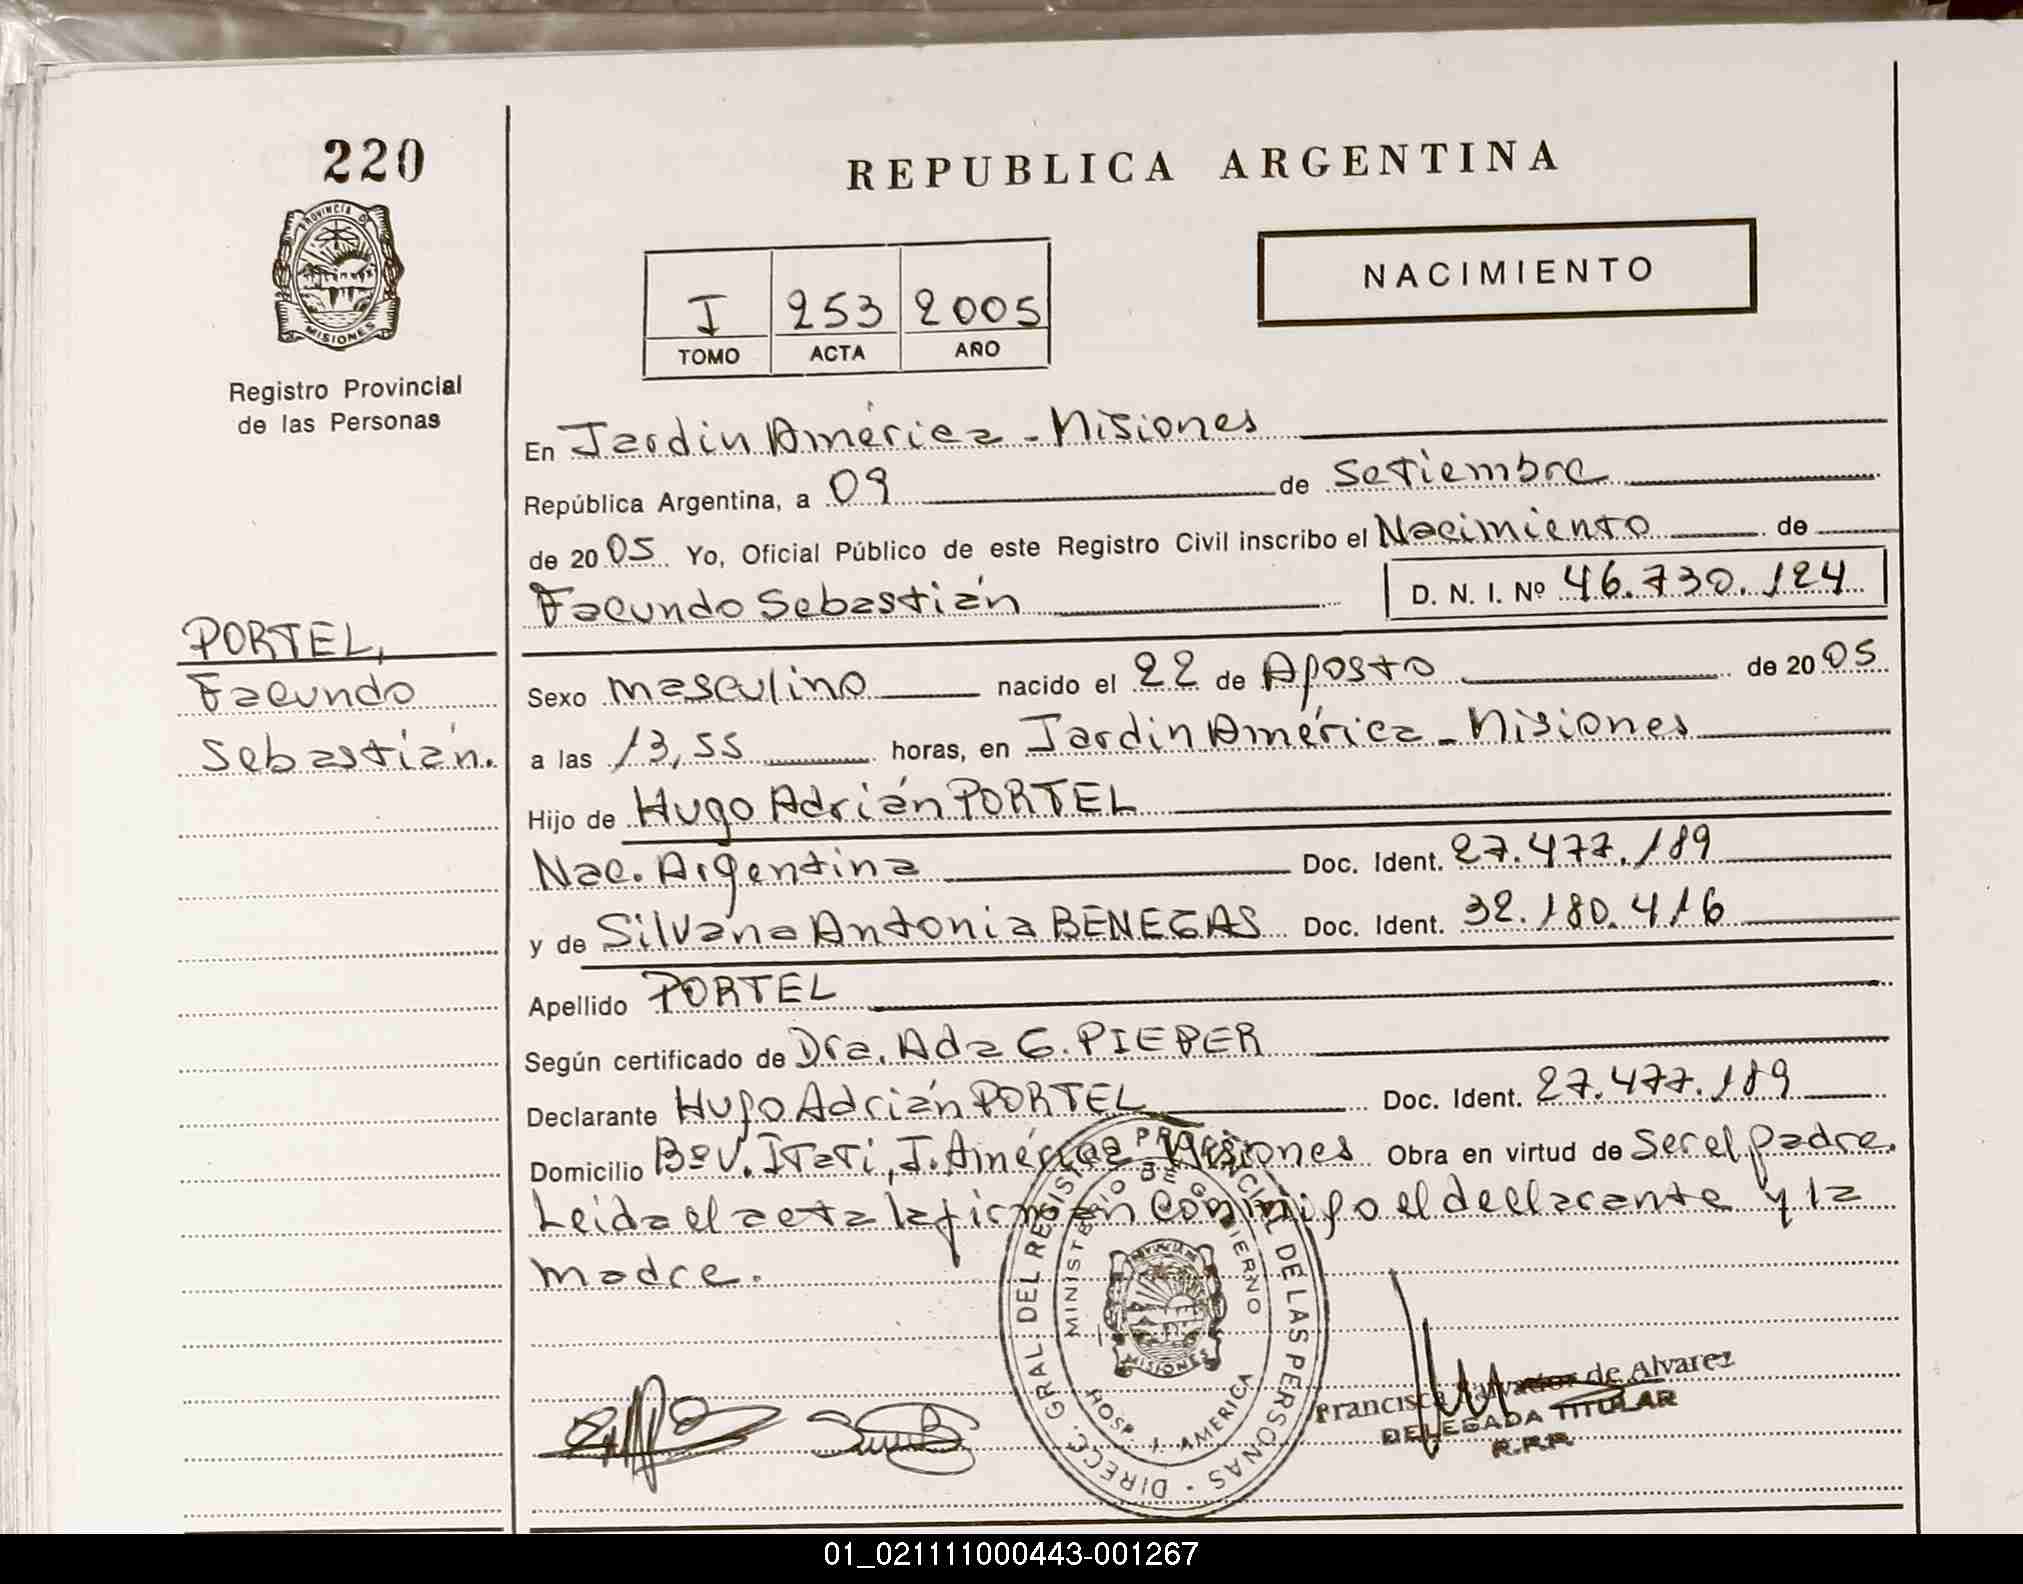 220
PROVINCIA DE
MISIONES
Registro Provincial
de las Personas
PORTEL,
Facundo
Sebastián.
REPUBLICA ARGENTINA
NACIMIENTO
I 253 2005
TOMO ACTA AÑO
En Jardín América - Misiones
República Argentina, a 09 de Setiembre
de 2005 Yo, Oficial Público de este Registro Civil inscribo el Nacimiento de
Facundo Sebastián D. N. I. Nº 46.730.124
Sexo masculino nacido el 22 de Agosto de 2005
a las 13,55 horas, en Jardín América - Misiones
Hijo de Hugo Adrián PORTEL
Nac. Argentina Doc. Ident. 27.477.189
y de Silvana Antonia BENEGAS Doc. Ident. 32.180.416
Apellido PORTEL
Según certificado de Dra. Ada G. PIEPER
Declarante Hugo Adrián PORTEL Doc. Ident. 27.477.189
Domicilio Bº V. Itatí, J. América Misiones Obra en virtud de Ser el padre.
Leida el acta la firman conmigo el declarante y la
madre.
DIREC. GRAL DEL REGISTRO PROVINCIAL DE LAS PERSONAS
MINISTERIO DE GOBIERNO
MISIONES
HOSP. J. AMERICA
Francisca Salvador de Alvarez
DELEGADA TITULAR
R.P.P.
01_021111000443-001267